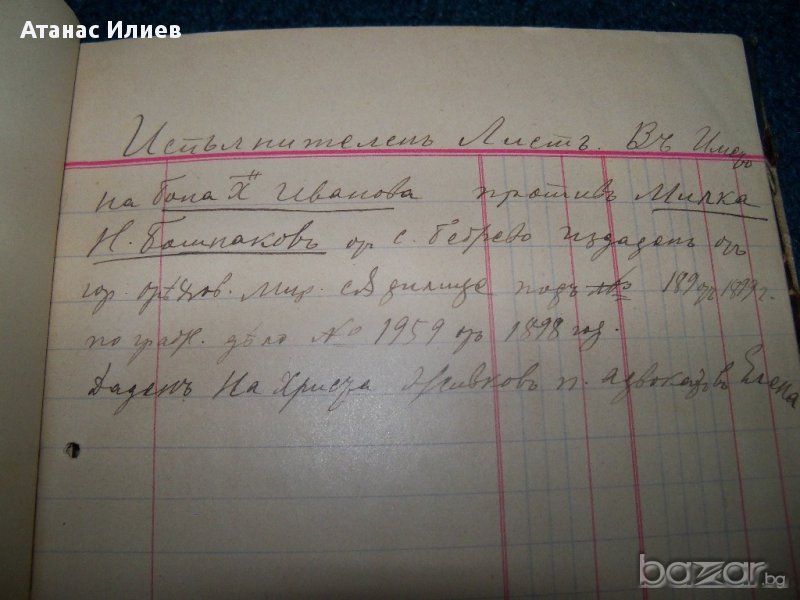 Атанас Илиев
Исполнителенъ Листъ. Въ Името
на Бона Хˮ Иванова противъ Милка
Н. Бошнаковъ от с. издаденъ отъ
гор. орѣхов. Мир. сѫдилище подъ № 189 от 1899 г.
по гражд. дѣло № 1959 отъ 1898 год.
Даденъ на Христа Живковъ п. адвокатъ Елена
bazar.bg